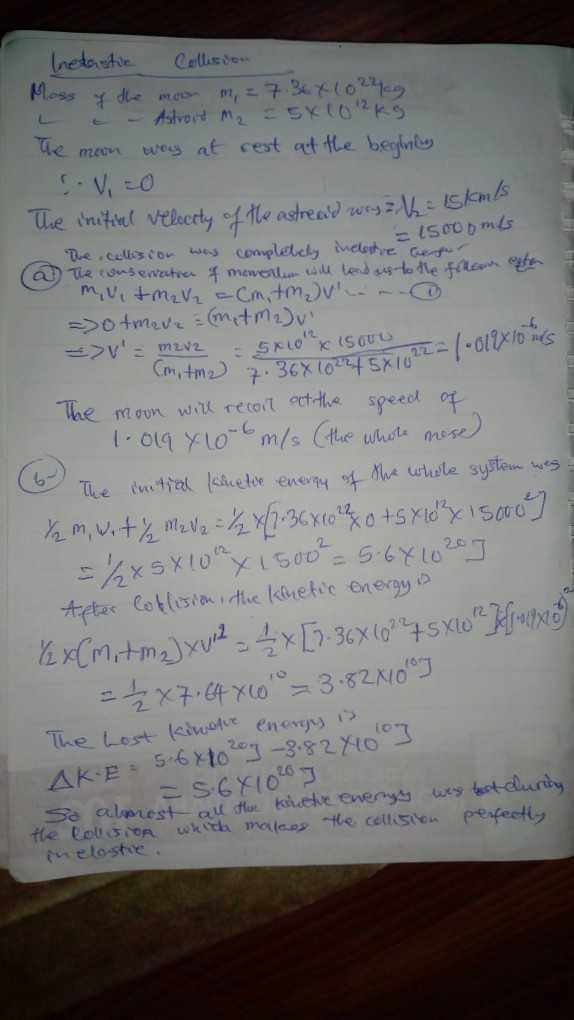 Inelastic Collision
Mass of the moon m₁ = 7.36×10²²kg
" " - Astroid M₂ = 5×10¹²kg
The moon was at rest at the begining
∴ V₁ = 0
The initial velocity of the astreoid was = V₂ = 15km/s
= 15000m/s
The collision was completely inelastic
(a) The conservation of momentum will lead us to the
m₁V₁ + m₂V₂ = (m₁+m₂)V' - - - ①
=> 0 + m₂V₂ = (m₁+m₂)V'
=> V' = m₂V₂/(m₁+m₂) = 5×10¹² × 15000/7.36×10²²+5×10²² = 1.019×10⁻⁶m/s
The moon will recoil at the speed of
1.019 ×10⁻⁶ m/s (the whole mase)
(b) The initial kinetic energy of the whole system was
½ m₁V₁ + ½ m₂V₂ = ½ ×[7.36×10²²×0 + 5×10¹²×15000²]
= ½ × 5×10¹² × 1500² = 5.6×10²⁰J
After Collision, the kinetic energy is
½ ×(m₁+m₂)×V'² = ½ × [7.36×10²²+5×10¹²]×[1.019×10⁻⁶]²
= ½ × 7.64 ×10¹⁰ = 3.82×10¹⁰J
The Lost kinetic energy is
ΔK·E = 5.6×10²⁰J - 3.82×10¹⁰J
= 5.6×10²⁰J
So almost all the kinetic energy was lost during
the Collision which makes the collision perfectly
inelastic.